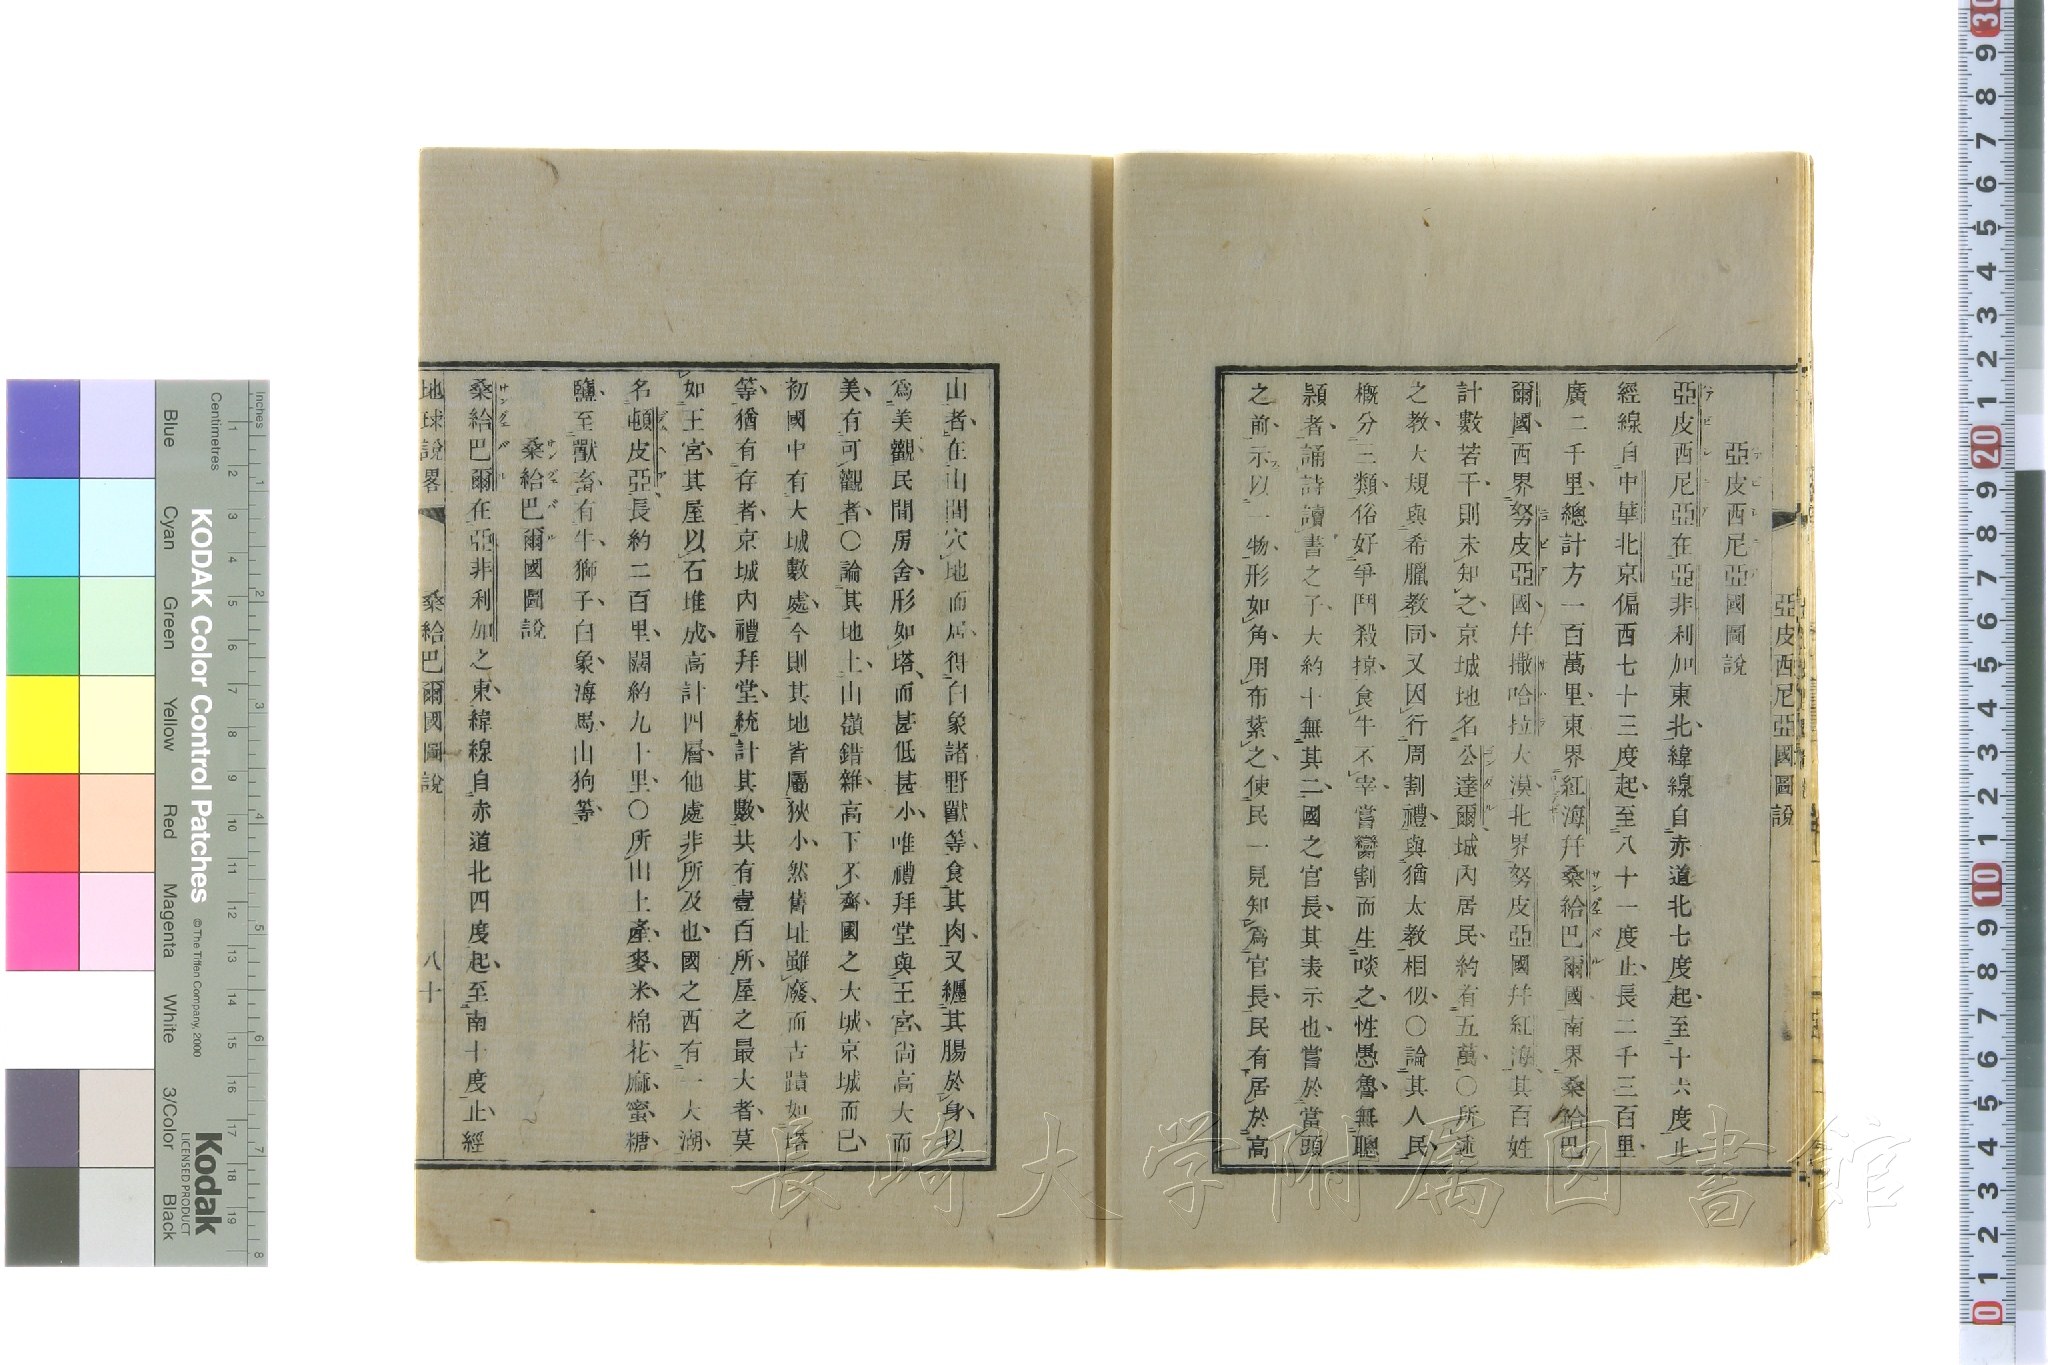 亞皮西尼亞國圖說
亞皮西尼亞國圖說
亞皮西尼亞在亞非利加東北緯線自赤道北七度起至十六度止
經線自中華北京偏西七十三度起至八十一度止長二千三百里
廣二千里總計方一百萬里東界紅海幷桑給巴爾國南界桑哈巴
爾國西界努皮亞國幷撒哈拉大漠北界努皮亞國幷紅海其百姓
計數若干則未知之京城地名公達爾城內居民約有五萬○所述
之教大規與希臘教同又因行周割禮與猶太教相似○論其人民
概分三類俗好爭鬥殺掠食牛不宰嘗臠割而生啖之性愚魯無聰
穎者誦詩讀書之子大約十無其二國之官長其表示也嘗於當頭
之前示以一物形如角用布紮之使民一見知爲官長民有居於高
山者在山間穴地而居得白象諸野獸等食其肉又纏其腸於身以
爲美觀民間房舍形如塔而甚低甚小唯禮拜堂與王宮尙高大而
美有可觀者○論其地土山嶺錯雜高下不齊國之大城京城而已
初國中有大城數處今則其地皆屬狹小然舊址雖廢而古蹟如塔
等猶有存者京城內禮拜堂統計其數共有壹百所屋之最大者莫
如王宮其屋以石堆成高計四層他處非所及也國之西有一大湖
名頓皮亞長約二百里闊約九十里○所山土產麥米棉花麻蜜糖
鹽至獸畜有牛獅子白象海馬山狗等
桑給巴爾國圖說
桑給巴爾在亞非利加之東緯線自赤道北四度起至南十度止經
地球說畧 桑給巴爾國圖說 八十
長崎大学附属図書館
KODAK Color Control Patches
© The Tiffen Company, 2000
Kodak
LICENSED PRODUCT
Inches
Centimetres
Blue Cyan Green Yellow Red Magenta White 3/Color Black